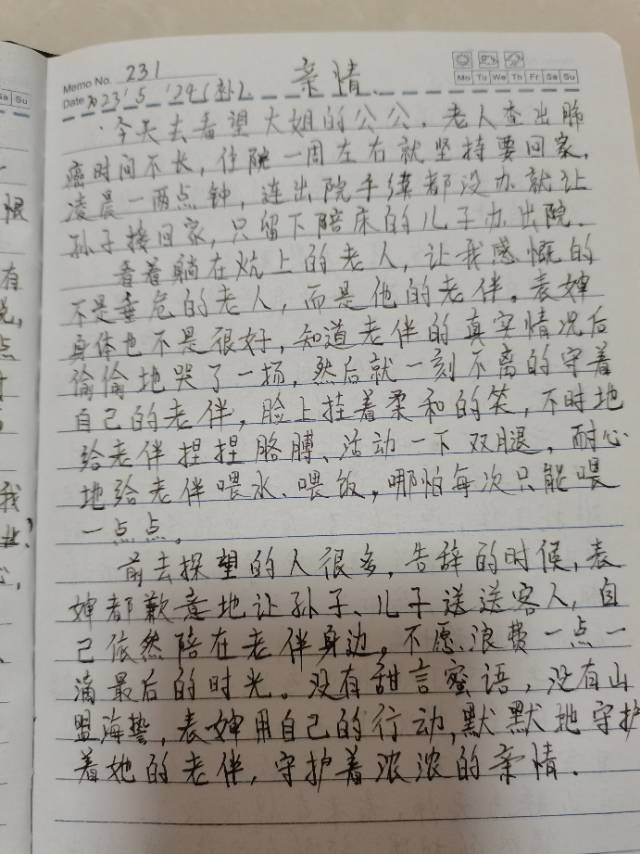 Memo No. 231
Mo Tu We Th Fr Sa Su
亲情.
Date 2023'5'24(补)
今天去看望大姐的公公.老人查出肺
癌时间不长,住院一周左右就坚持要回家,
凌晨一两点钟,连出院手续都没办就让
孙子接回家,只留下陪床的儿子办出院.
看着躺在炕上的老人,让我感慨的
不是垂危的老人,而是他的老伴。表婶
身体也不是很好,知道老伴的真实情况后
偷偷地哭了一场,然后就一刻不离的守着
自己的老伴,脸上挂着柔和的笑,不时地
给老伴捏捏胳膊、活动一下双腿,耐心
地给老伴喂水、喂饭,哪怕每次只能喂
一点点。
前去探望的人很多,告辞的时候,表
婶都歉意地让孙子、儿子送送客人,自
己依然陪在老伴身边,不愿浪费一点一
滴最后的时光。没有甜言蜜语,没有山
盟海誓,表婶用自己的行动,默默地守护
着她的老伴,守护着浓浓的亲情.
Sa Su
恨
有
说,
点
我
业?